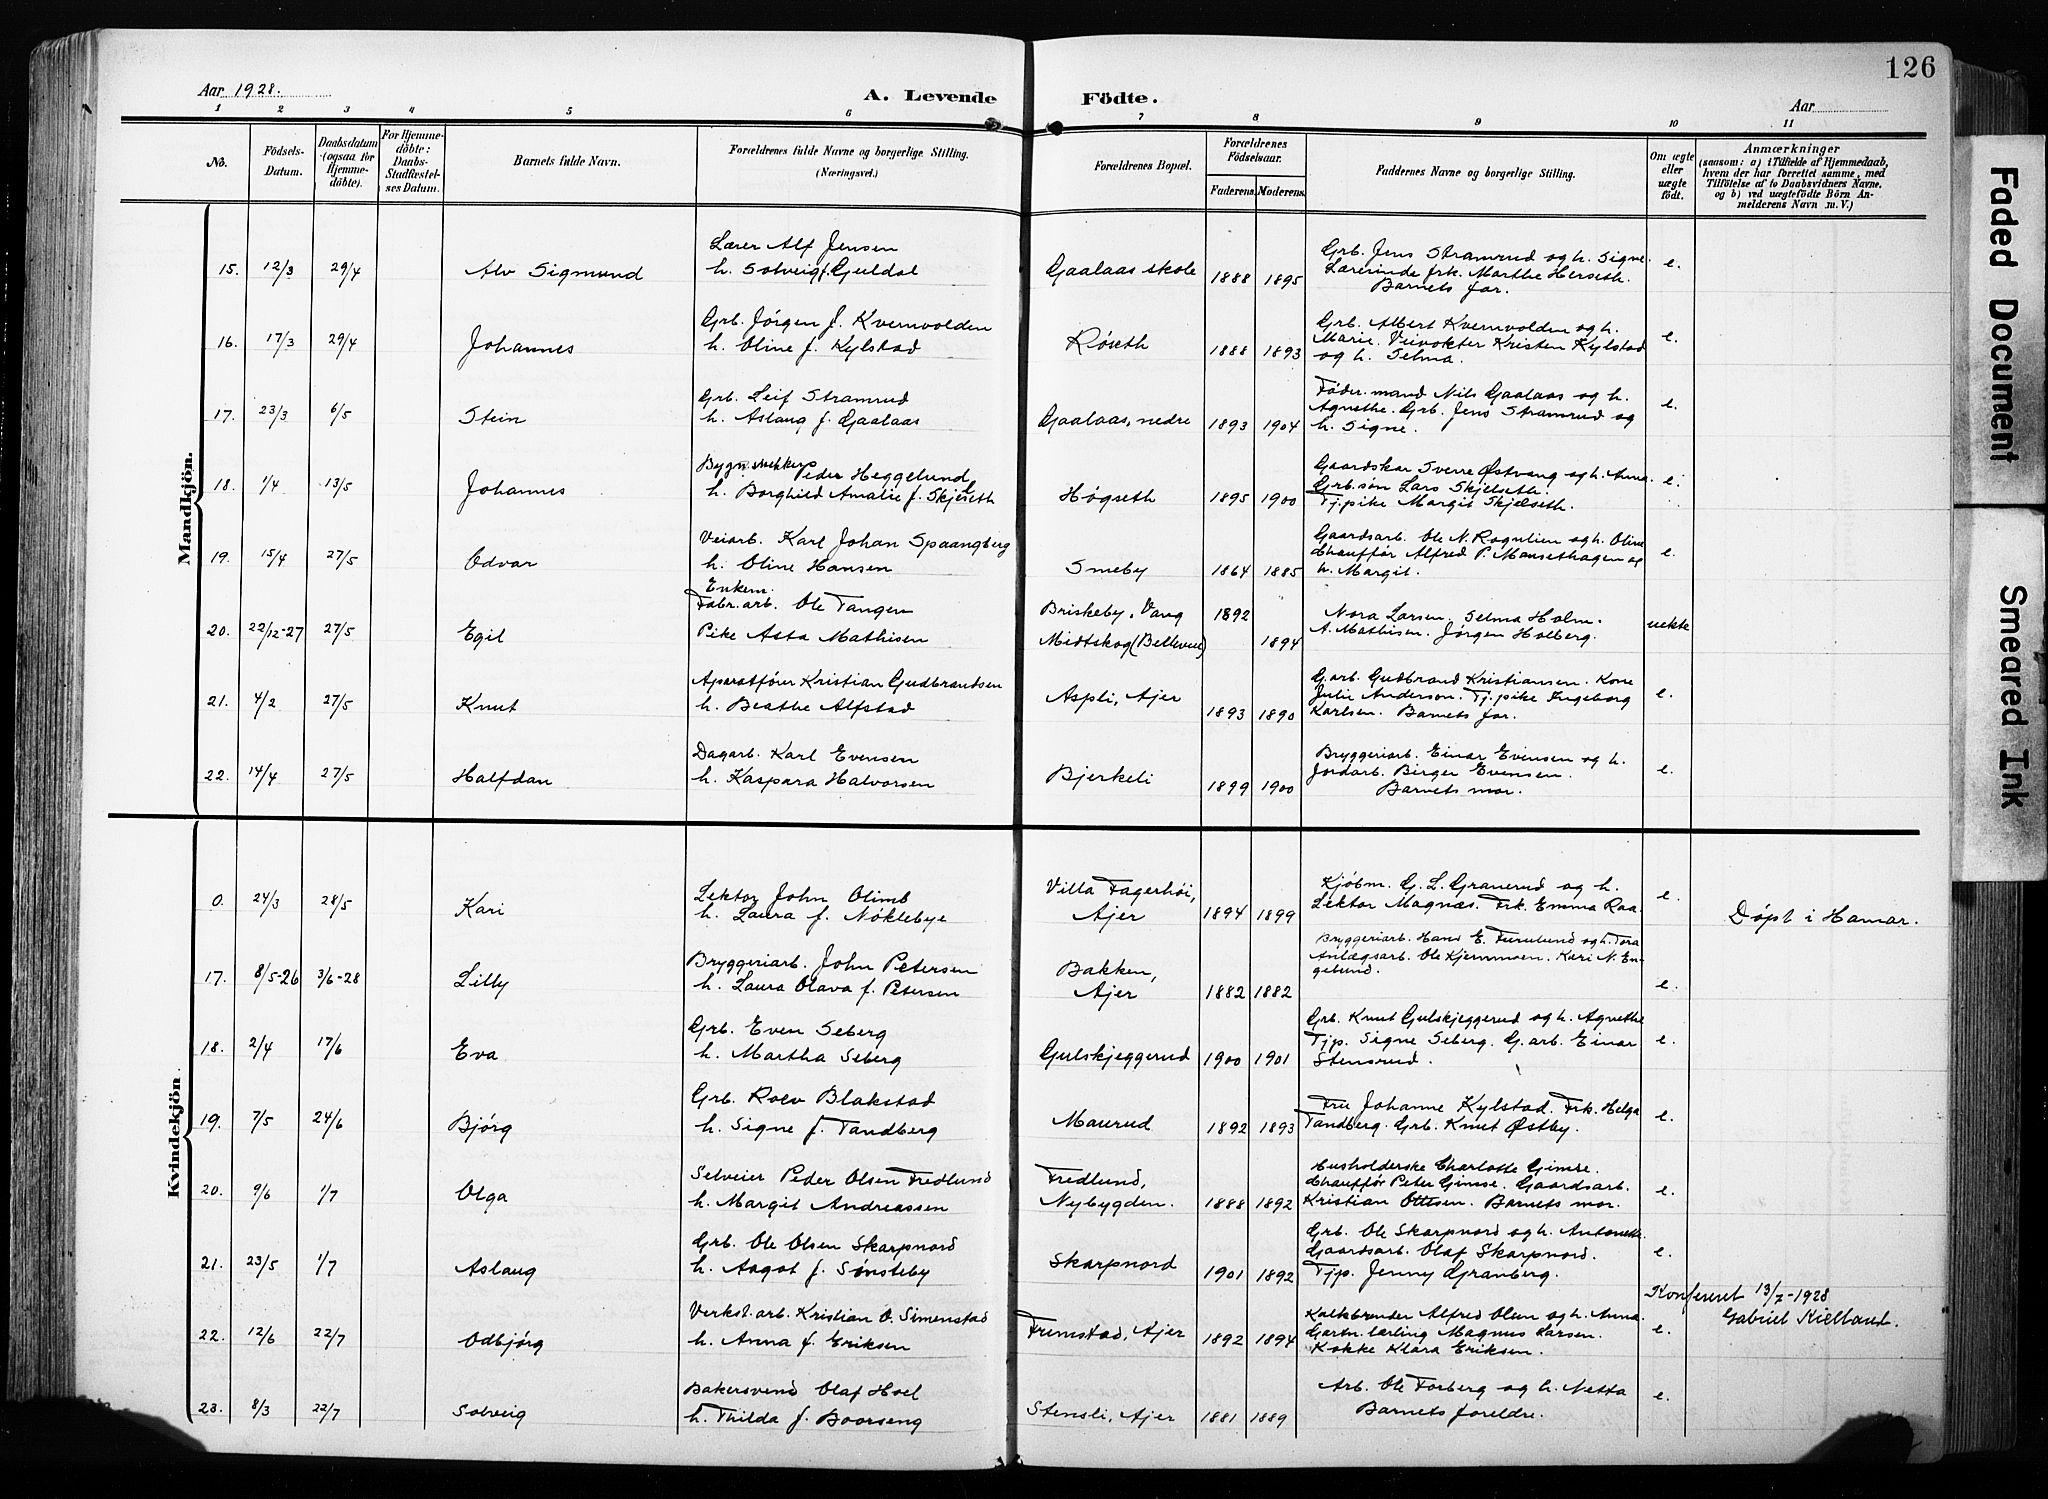 126
Aar 1928.
A. Levende Födte.
Aar
1 2 3 4 5 6 7 8 9 10 11
No.
Födsels-Datum.
Daabsdatum (ogsaa for Hjemmedöbte).
For Hjemmedöbte: Daabs-Stadfæstelses Datum.
Barnets fulde Navn.
Forældrenes fulde Navne og borgerlige Stilling.
(Næringsvei.)
Forældrenes Bopæl.
Forældrenes Födselsaar.
Faderens. Moderens.
Faddernes Navne og borgerlige Stilling.
Om ægte eller uægte födt.
Anmærkninger
(saasom: a) i Tilfælde af Hjemmedaab, hvem der har forrettet samme, med Tilföielse af to Daabsvidners Navne, og b) ved uægtefödte Börn Anmelderens Navn m. V.)
Mandkjön.
15. 12/3 29/4 Alv Sigmund
Lærer Alf Jensen
h. Solveig f. Guldal
Gaalaas skole 1888 1895
Grb. Jens Stramrud og h. Signe.
Lærerinde frk. Marthe Herseth.
Barnets far.
e.
16. 17/3 29/4 Johannes
Grb. Jörgen J. Kvernvolden
h. Oline f. Kylstad
Røseth 1888 1893
Grb. Albert Kvernvolden og h.
Marie. Veivokter Kristen Kylstad
og h. Selma.
e.
17. 23/3 6/5 Stein
Grb. Leif Stramrud
h. Aslaug f. Gaalaas
Gaalaas, nedre 1893 1904
Föder.mand Nils Gaalaas og h.
Agnethe. Grb. Jens Stramrud og
h. Signe.
e.
18. 1/4 13/5 Johannes
Bygn.snekker Peder Heggelund
h. Borghild Amalie f. Skjelseth
Høgseth 1895 1900
Gaardskar Sverre Østvang og h. Anna.
Grb.søn Lars Skjelseth.
Tj.pike Margit Skjelseth.
e.
19. 15/4 27/5 Odvar
Veiarb. Karl Johan Spaangberg
h. Oline Hansen
Smeby 1864 1885
Gaardsarb. Ole N. Rognlien og h. Oline
Chauffør Alfred P. Mausethagen og
h. Margit.
e.
20. 22/12-27 27/5 Egil
Enkem.
Fabr.arb. Ole Tangen
Pike Asta Mathisen
Briskeby, Vang 1892
Midtskog (Bellevue) 1894
Nora Larsen. Selma Holm.
A. Mathisen. Jørgen Holberg.
uekte
21. 4/2 27/5 Knut
Aparatfører Kristian Gudbrandsen
h. Beathe Alfstad
Aspli, Ajer 1893 1890
G.arb. Gudbrand Kristiansen. Kone
Julie Anderson. Tj.pike Ingeborg
Karlsen. Barnets far.
e.
22. 14/4 27/5 Halfdan
Dagarb. Karl Evensen
h. Kaspara Halvorsen
Bjerkeli 1899 1900
Bryggeriarb. Einar Evensen og h.
Jordarb. Birger Evensen.
Barnets mor.
e.
Kvindekjön
0. 24/3 28/5 Kari
Lektor John Olimb
h. Laura f. Nöklebye
Villa Fagerhöi,
Ajer 1894 1899
Kjöbm. G. L. Granerud og h.
Lektor Magnæs. Frk. Emma Raa.
e.
Döpt i Hamar.
17. 8/5-26 3/6-28 Lilly
Bryggeriarb. John Petersen
h. Laura Olava f. Petersen
Bakken,
Ajer 1882 1882
Bryggeriarb. Hans E. Furulund og h. Tora
Anlægsarb. Ole Kjernmoen. Kari N. Engelund.
e.
18. 2/4 17/6 Eva
Grb. Even Seberg
h. Martha Seberg
Gulskjeggerud 1900 1901
Grb. Knut Gulskjeggerud og h. Agnethe
Tjp. Signe Seberg. G.arb. Einar
Stensrud.
e.
19. 7/5 24/6 Bjørg
Grb. Roev Blakstad
h. Signe f. Tandberg
Maurud 1892 1893
Fru Johanne Kylstad. Frk. Helga
Tandberg. Grb. Knut Østby.
e.
20. 9/6 1/7 Olga
Selveier Peder Olsen Fredlund
h. Margit Andreassen
Fredlund,
Nybygden. 1888 1892
Husholderske Charlotte Gimse.
Chauffør Peter Gimse. Gaardsarb.
Kristian Ottesen. Barnets mor.
e.
21. 23/5 1/7 Aslaug
Grb. Ole Olsen Skarpnord
h. Aagot f. Sønsteby
Skarpnord 1901 1892
Grb. Ole Skarpnord og h. Antonette.
Gaardsarb. Olaf Skarpnord.
Tjp. Jenny Granberg.
e.
Konferert 13/7-1928
Gabriel Kielland.
22. 12/6 22/7 Odbjørg
Verkst.arb. Kristian O. Simenstad
h. Anna f. Eriksen
Frimstad, Ajer 1892 1894
Kalkbrender Alfred Olsen og h. Anna
Gartn.lærling Magnus Larsen.
Kokke Klara Eriksen.
e.
23. 8/3 22/7 Solveig
Bakersvend Olaf Hoel
h. Thilda f. Boorseng
Stensli, Ajer 1881 1889
Arb. Ole Torberg og h. Netta
Barnets foreldre.
e.
Faded Document
Smeared Ink